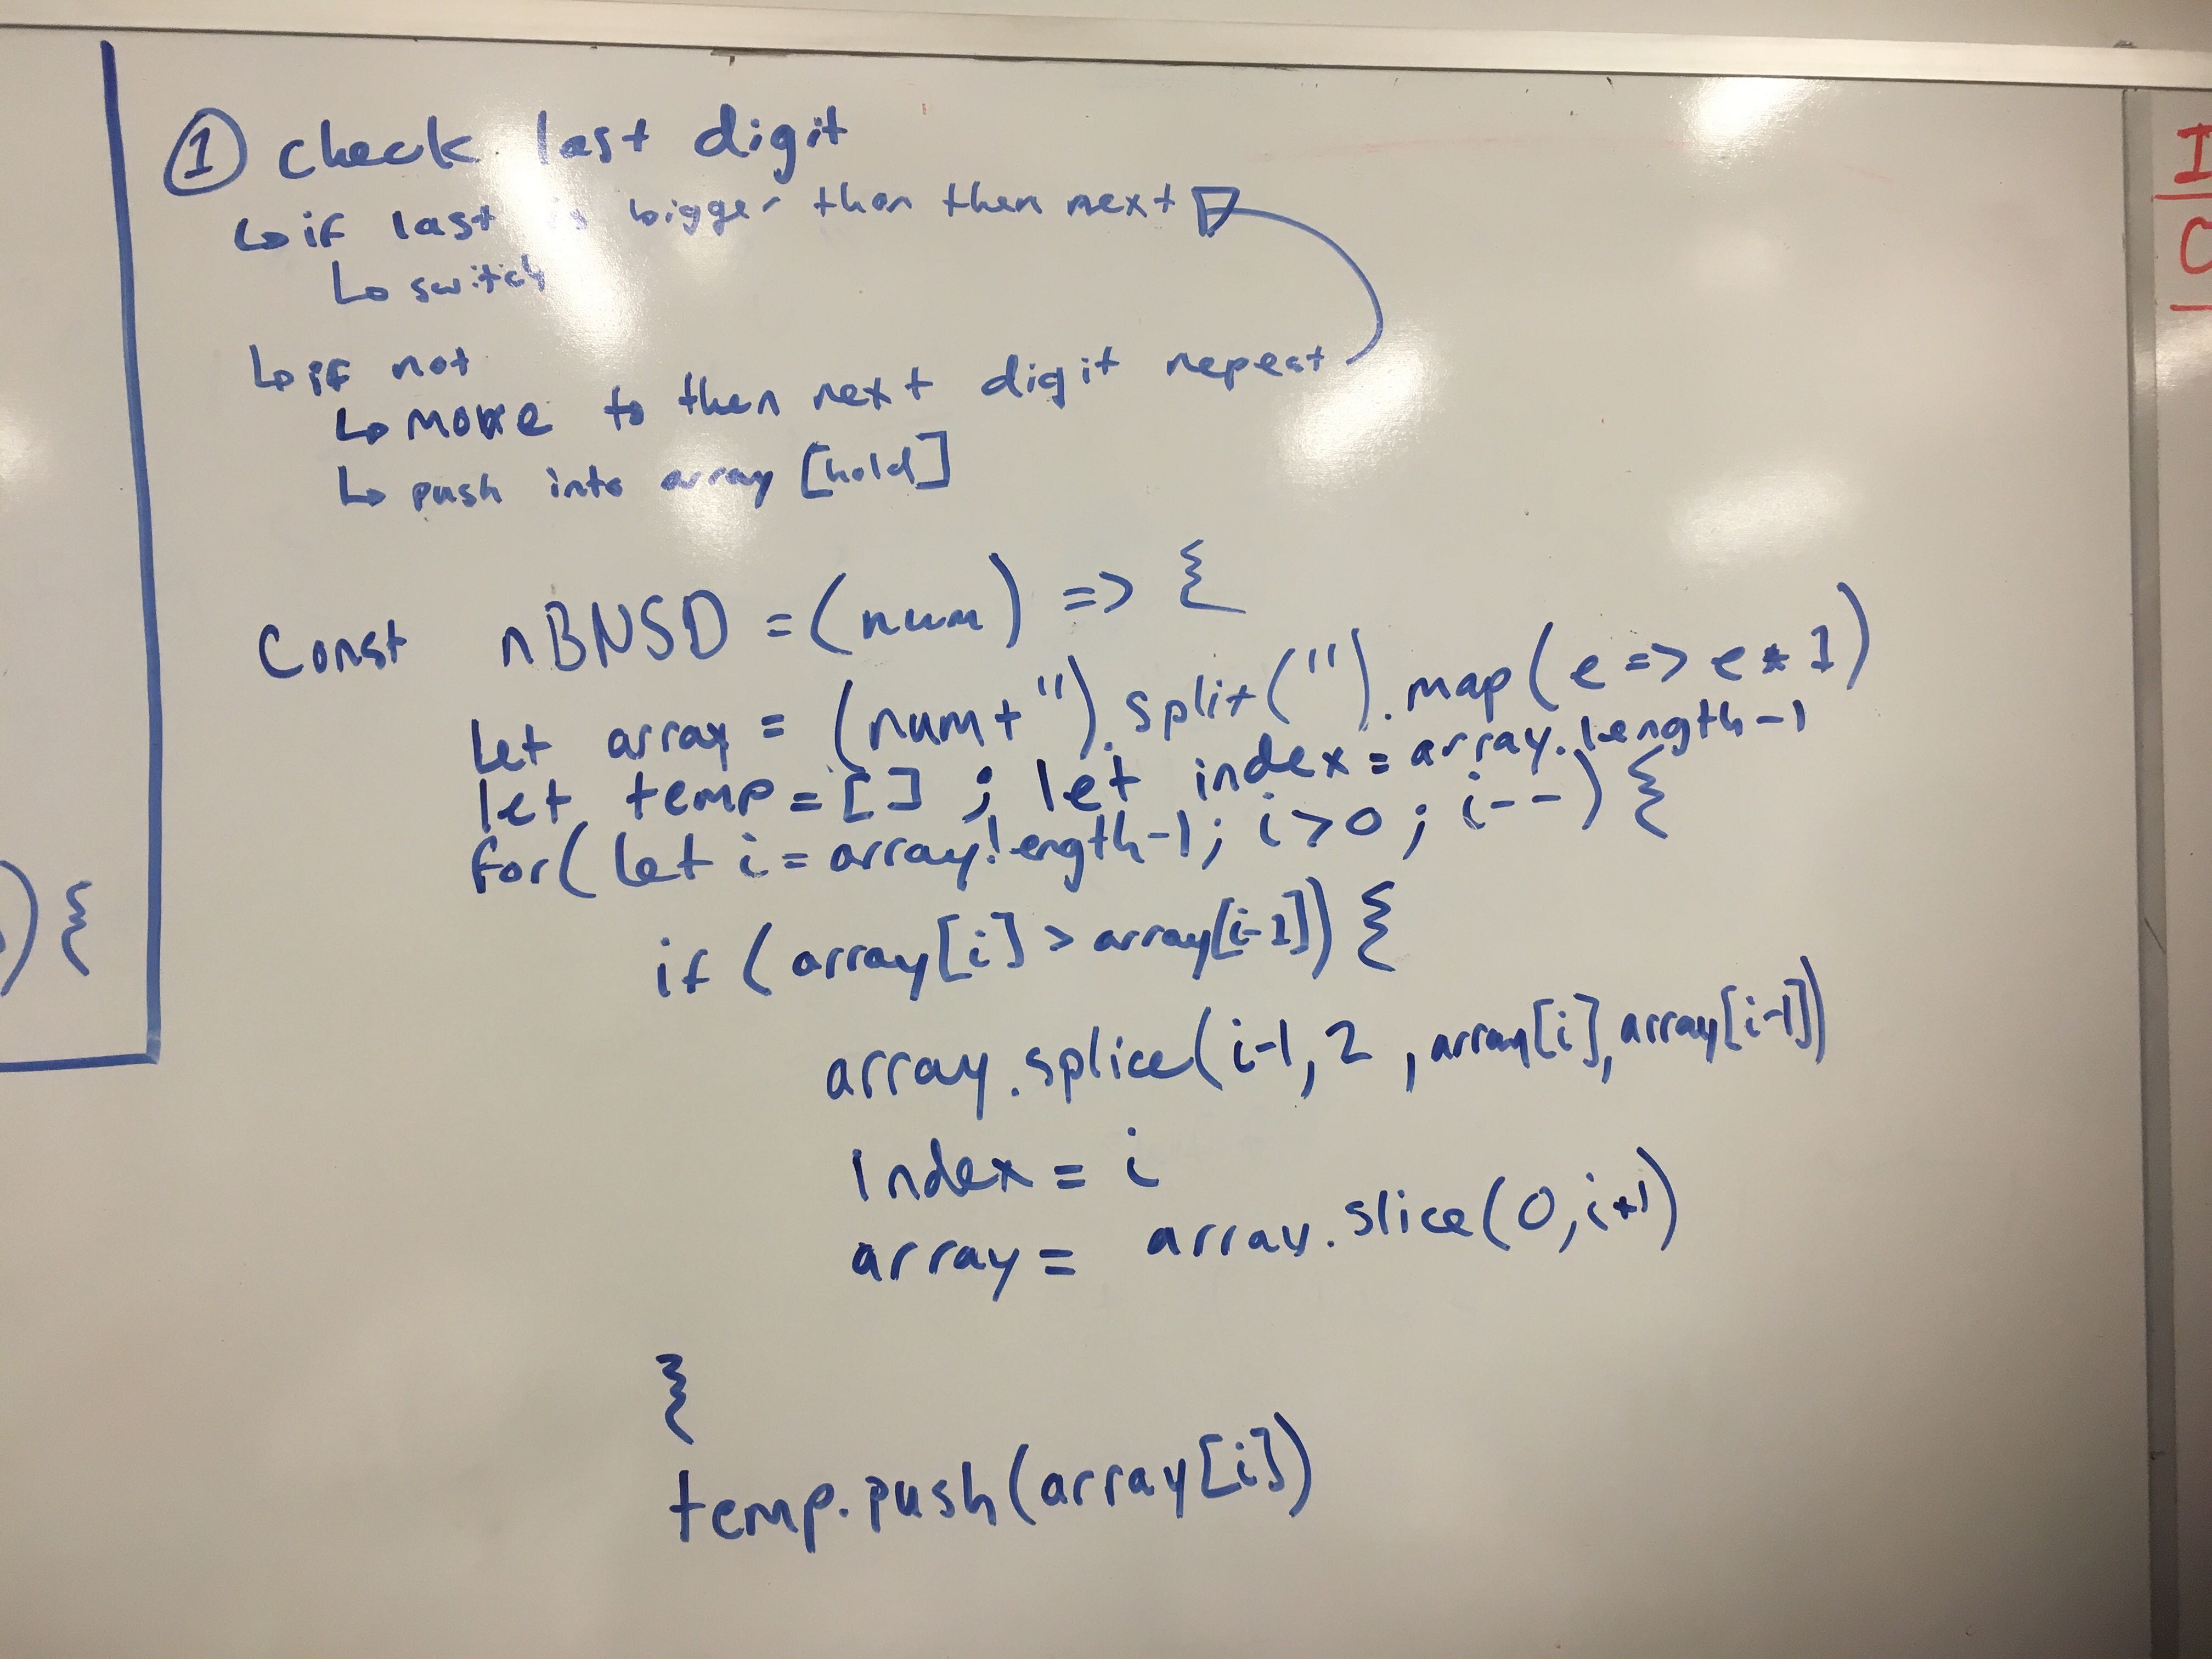 ① check last digit
↳ if last is bigger than then next
↳ switch
↳ if not
↳ move to then next digit repeat
↳ push into array [hold]
Const nBNSD = (num) => {
let array = (num+'').split('').map(e => e*1)
let temp = []; let index = array.length-1
for(let i = array.length-1; i>0; i--) {
if (array[i] > array[i-1]) {
array.splice(i-1, 2, array[i], array[i-1])
Index = i
array = array.slice(0, i+1)
}
temp.push(array[i])
) {
I